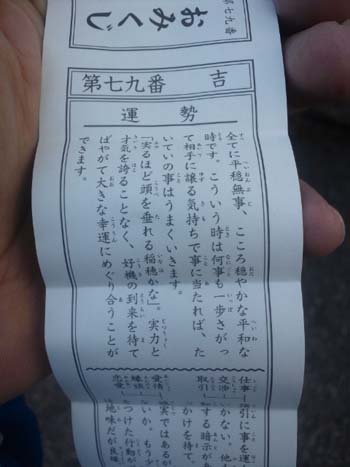 第七九番
おみくじ
第七九番 吉
運勢
全てに平穏無事、こころ穏やかな平和な
時です。こういう時は何事も一歩さがっ
て相手に譲る気持ちで事に当たれば、た
いていの事はうまくいきます。
「実るほど頭を垂れる稲穂かな」。実力と
才気を誇ることなく、好機の到来を待て
ばやがて大きな幸運にめぐり合うことが
できます。
仕事
交渉
取引
引に事を運
かない。他
する暗示が
かけを待て。
愛情
縁談
恋愛
実ではあるが
いか。もう少
つけた行動が
地味だが良縁